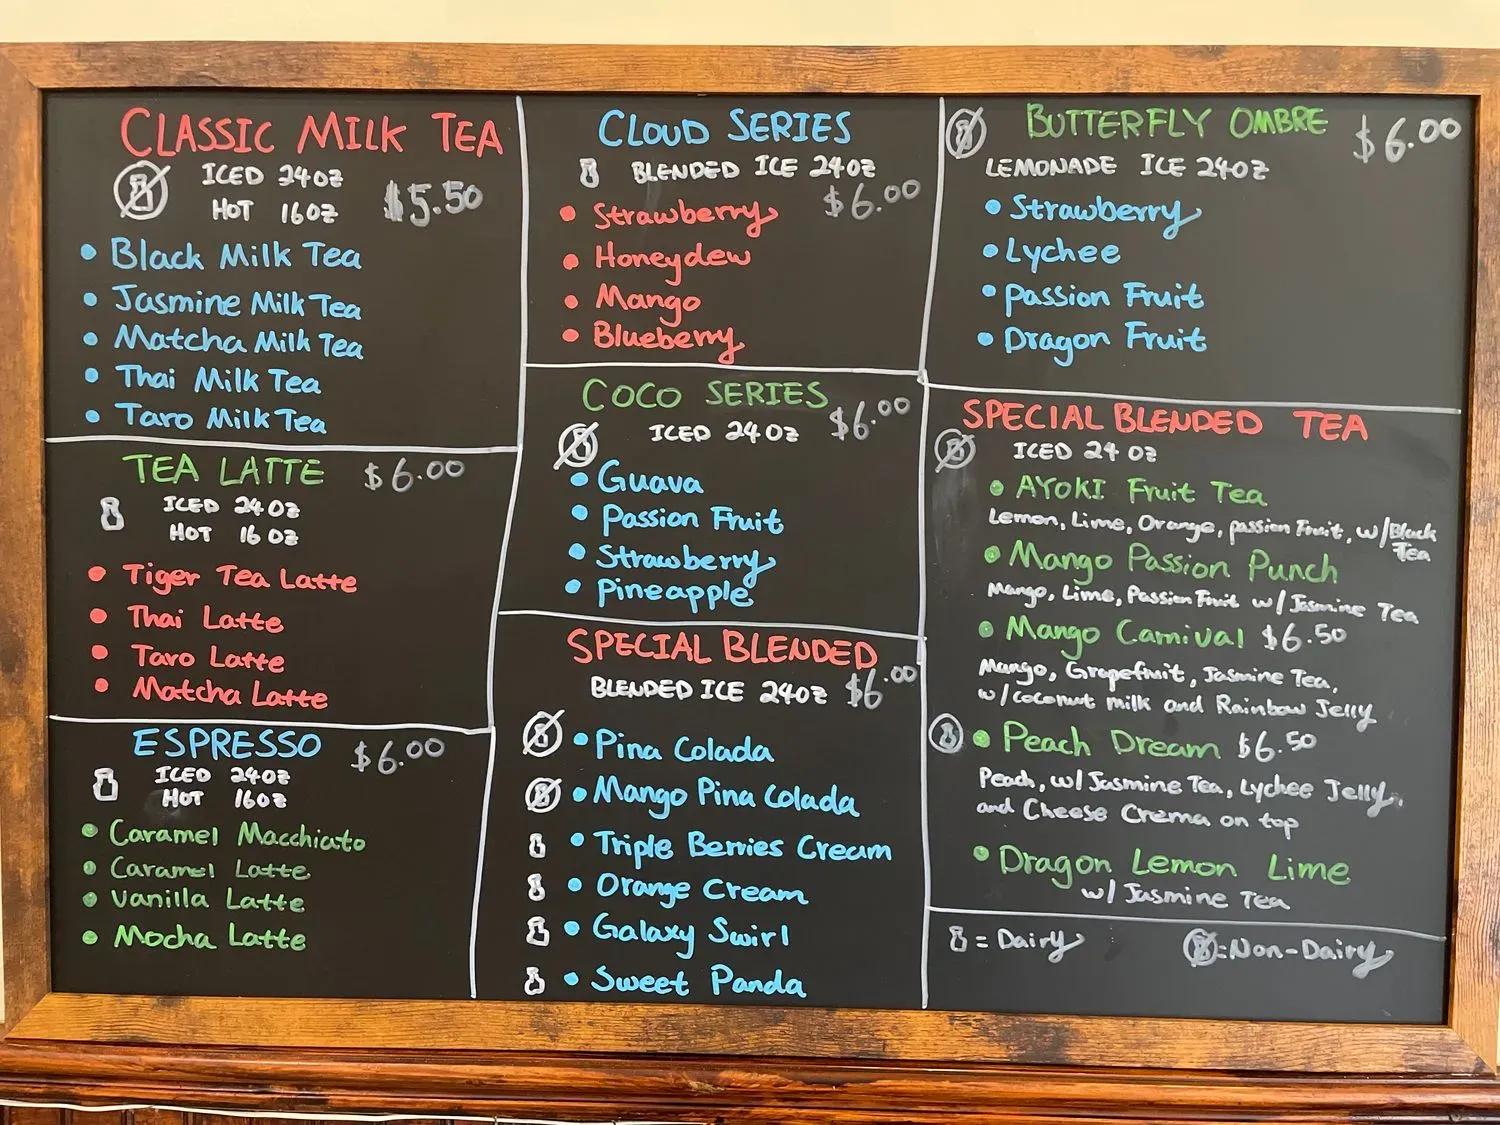 CLASSIC MILK TEA
ICED 24oz
HOT 16oz
$5.50
Black Milk Tea
Jasmine Milk Tea
Matcha Milk Tea
Thai Milk Tea
Taro Milk Tea
TEA LATTE $6.00
ICED 24oz
HOT 16oz
Tiger Tea Latte
Thai Latte
Taro Latte
Matcha Latte
ESPRESSO $6.00
ICED 24oz
HOT 16oz
Caramel Macchiato
Caramel Latte
Vanilla Latte
Mocha Latte
CLOUD SERIES
BLENDED ICE 24oz
$6.00
Strawberry
Honeydew
Mango
Blueberry
COCO SERIES
$6.00
ICED 24oz
Guava
Passion Fruit
Strawberry
Pineapple
SPECIAL BLENDED
BLENDED ICE 24oz $6.00
Pina Colada
Mango Pina Colada
Triple Berries Cream
Orange Cream
Galaxy Swirl
Sweet Panda
BUTTERFLY OMBRE $6.00
LEMONADE ICE 24oz
Strawberry
Lychee
Passion Fruit
Dragon Fruit
SPECIAL BLENDED TEA
ICED 24oz
AYOKI Fruit Tea
Lemon, Lime, Orange, passion Fruit, w/Black
Tea
Mango Passion Punch
Mango, Lime, Passion Fruit w/ Jasmine Tea
Mango Carnival $6.50
Mango, Grapefruit, Jasmine Tea,
w/coconut milk and Rainbow Jelly
Peach Dream $6.50
Peach, w/Jasmine Tea, Lychee Jelly,
and Cheese Crema on top
Dragon Lemon Lime
w/ Jasmine Tea
= Dairy
=Non-Dairy